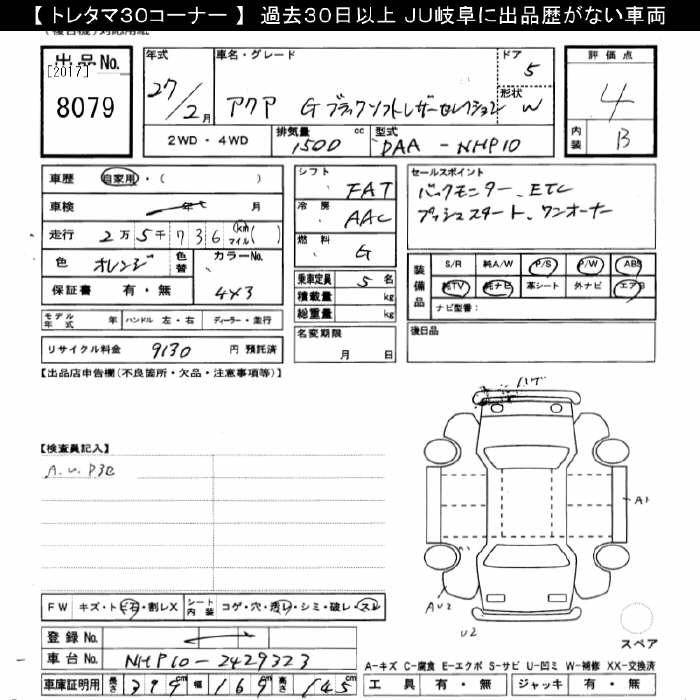 【 トレタマ３０コーナー 】 過去３０日以上 ＪＵ岐阜に出品歴がない車両
出品No.
[2017]
8079
年式
27/2月
車名・グレード
アクア G ブラックソフトレザーセレクション
ドア
5
形状
W
2WD・4WD
排気量
1500 cc
型式
DAA - NHP10
評価点
4
内装
B
車歴 自家用・( )
車検 年 月
走行 2万5千736 km マイル ( )
色 オレンジ 色替 カラーNo. 4X3
保証書 有・無
モデル年式 年 ハンドル 左・右 ディーラー・並行
リサイクル料金 9130 円 預託済
シフト
FAT
冷房
AAC
燃料
G
乗車定員 5 名
積載量 kg
総重量 kg
名変期限
月 日
セールスポイント
バックモニター、ETC
プッシュスタート、ワンオーナー
装備品
S/R 純A/W P/S P/W ABS
純TV 純ナビ 革シート 外ナビ エアB
ナビ型番：
後日品
【出品店申告欄(不良箇所・欠品・注意事項等)】
【検査員記入】
A.U.P3E
ハゲ
A1
AU2
U2
スペア
FW キズ・トビ石・割レX シート内装 コゲ・穴・透レ・シミ・破レ・スレ
登録 No.
車台 No. NHP10-2429323
車庫証明用 長さ 399cm 幅 169cm 高さ 145cm
A-キズ C-腐食 E-エクボ S-サビ U-凹ミ W-補修 XX-交換済
工具 有・無 ジャッキ 有・無